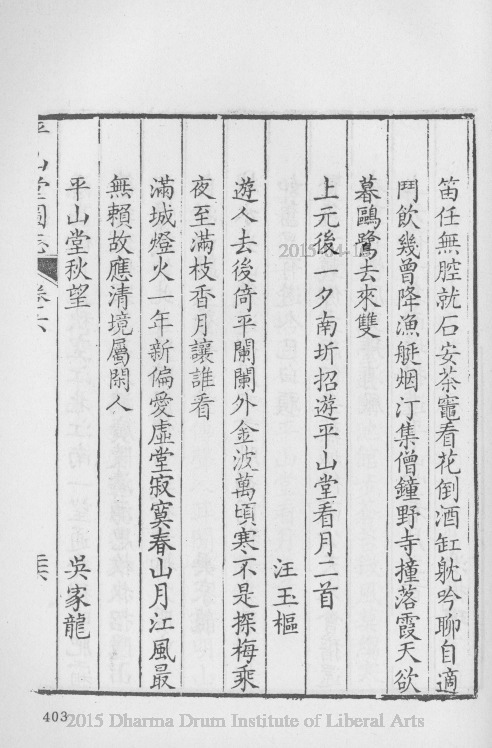 笛任無腔就石安茶竈看花倒酒缸躭吟聊自適
鬥飲幾曾降漁艇烟汀集僧鐘野寺撞落霞天欲
暮鷗鷺去來雙
上元後一夕南圻招遊平山堂看月二首
汪玉樞
遊人去後倚平闌闌外金波萬頃寒不是探梅乘
夜至滿枝香月讓誰看
滿城燈火一年新偏愛虛堂寂寞春山月江風最
無賴故應清境屬閑人
平山堂秋望
吳家龍
平山堂圖志
卷六
2015-04-1
403
2015 Dharma Drum Institute of Liberal Arts